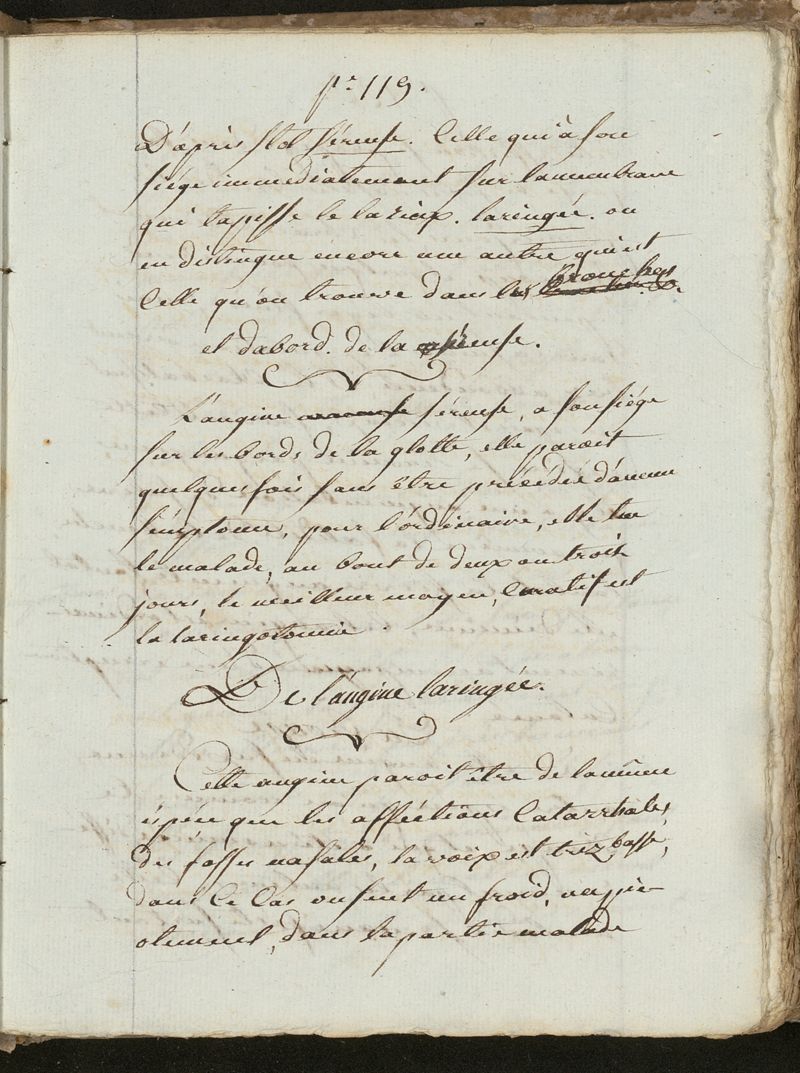 pr 119.
D'après Stol séreuse. Celle qui à son
siége immediatement sur la membrane
qui tapisse le larinx. laringée. on
en distingue encore une autre qui est
Celle qu'on trouve dans les bronches
et dabord. de la séreuse.
L'angine séreuse, a son siége
sur les bords de la glotte, elle paroit
quelques fois sans être précédée d'aucun
simptome, pour l'ordinaire, elle tue
le malade, au bout de deux ou trois
jours, le meilleur moyen, Curatif est
la laringotomie
De l'angine laringée.
Cette angine paroit être de la même
espéce que les afféctions Catarrhales,
des fosses nasales, la voix est trez basse,
dans Ce Cas on sent un froid, un
otement, dans la partie malade